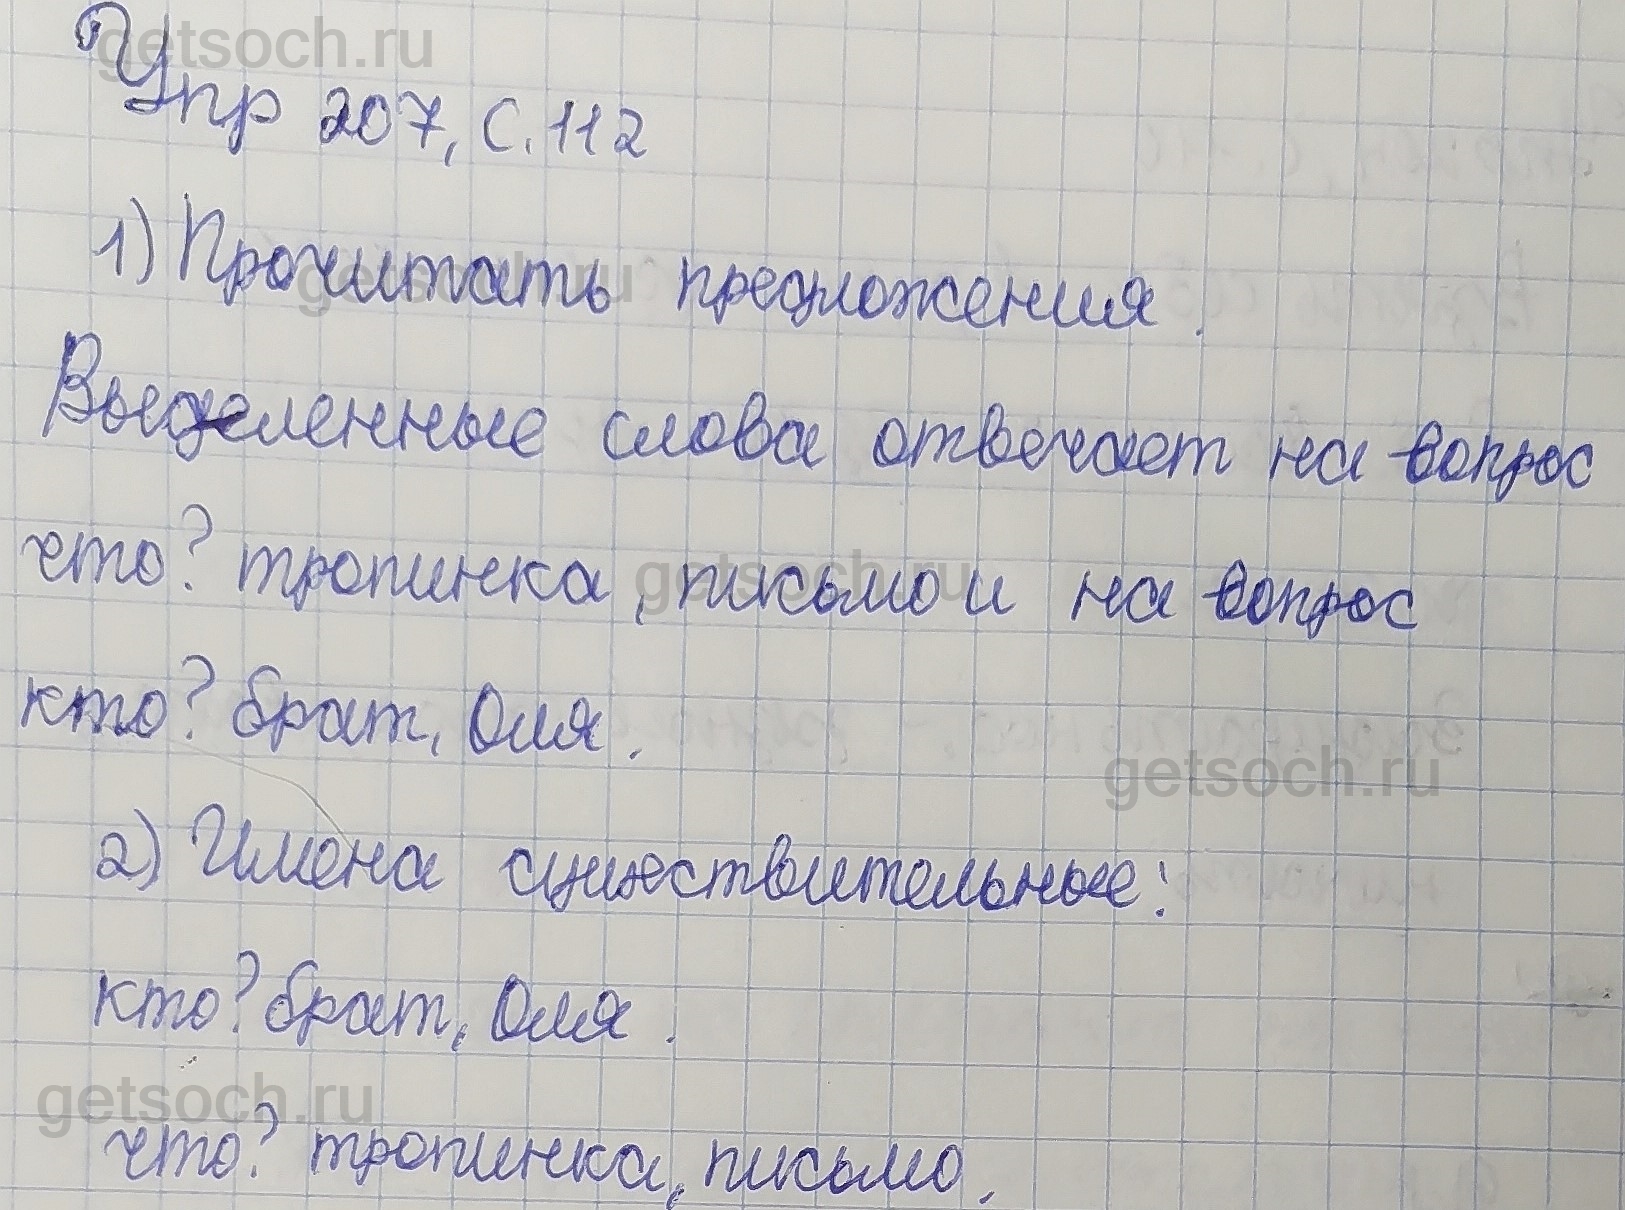 getsoch.ru
Упр 207, с. 112
1) Прочитать предложения.
getsoch.ru
Выделенные слова отвечает на вопрос
что? тропинка, письмо и на вопрос
getsoch.ru
кто? брат, Оля.
getsoch.ru
2) Имена существительные:
кто? брат, Оля.
getsoch.ru
что? тропинка, письмо.